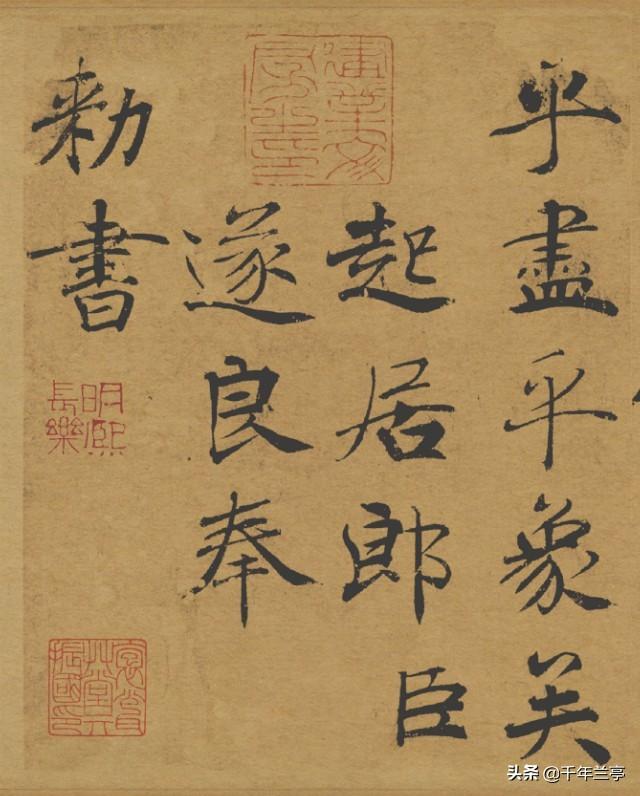 乎盡乎象矣
起居郎臣
遂良奉
勑書
建業文房之印
明熙長樂
头条 @千年兰亭